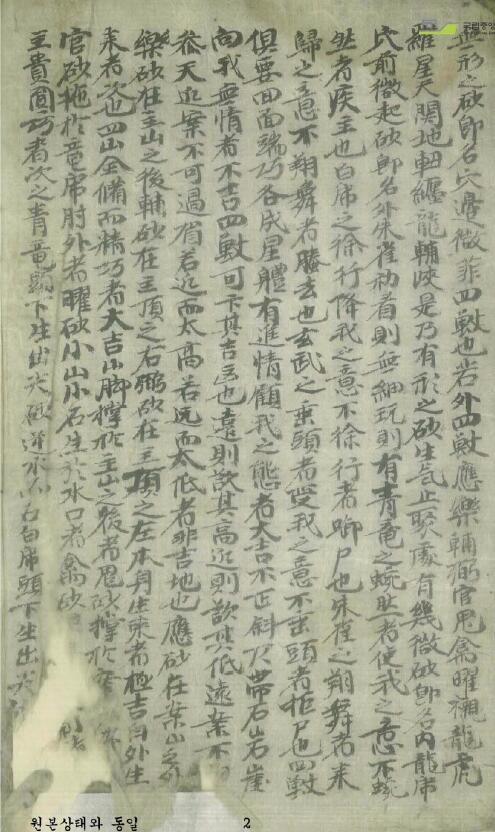 無形之砂卽名穴邊微菲四獸也若外四獸應樂輔弼官鬼禽曜禍龍虎
羅星天關地軸纏龍輔峽是乃有形之砂生气止聚處有幾微砂卽名內龍席
穴前微起砂卽名外朱雀初看則無細玩則有靑竜之蜿蜒者使我之意不蜿
然者疾主也白席之徐行降我之意不徐行者啣尸也朱雀之翔舞者来
歸之意不翔舞者騰去也玄武之垂頭者受我之意不垂頭者拒尸也四獸
俱要回面端巧各成星體有進情顧我之態者大吉不正斜尺帶石岩崖
向我無情者不吉四獸可卞其吉凶也遠則欲其高近則欲其低遠案不
參天近案不可過眉若近而太高若远而太低者非吉地也應砂在案山之外
樂砂在主山之後輔砂在主頂之右弼砂在主頂之左本身生来者極吉自外生
来者次也四山全備而精巧者大吉山脚撑於主山之後者鬼砂撑於案
官砂拖於竜席肘外者曜砂小山小石生於水口者禽砂
主貴圓巧者次之靑竜頭下生出尖砂逆水
右白席頭下生出尖
원본상태와 동일
2
국립중앙